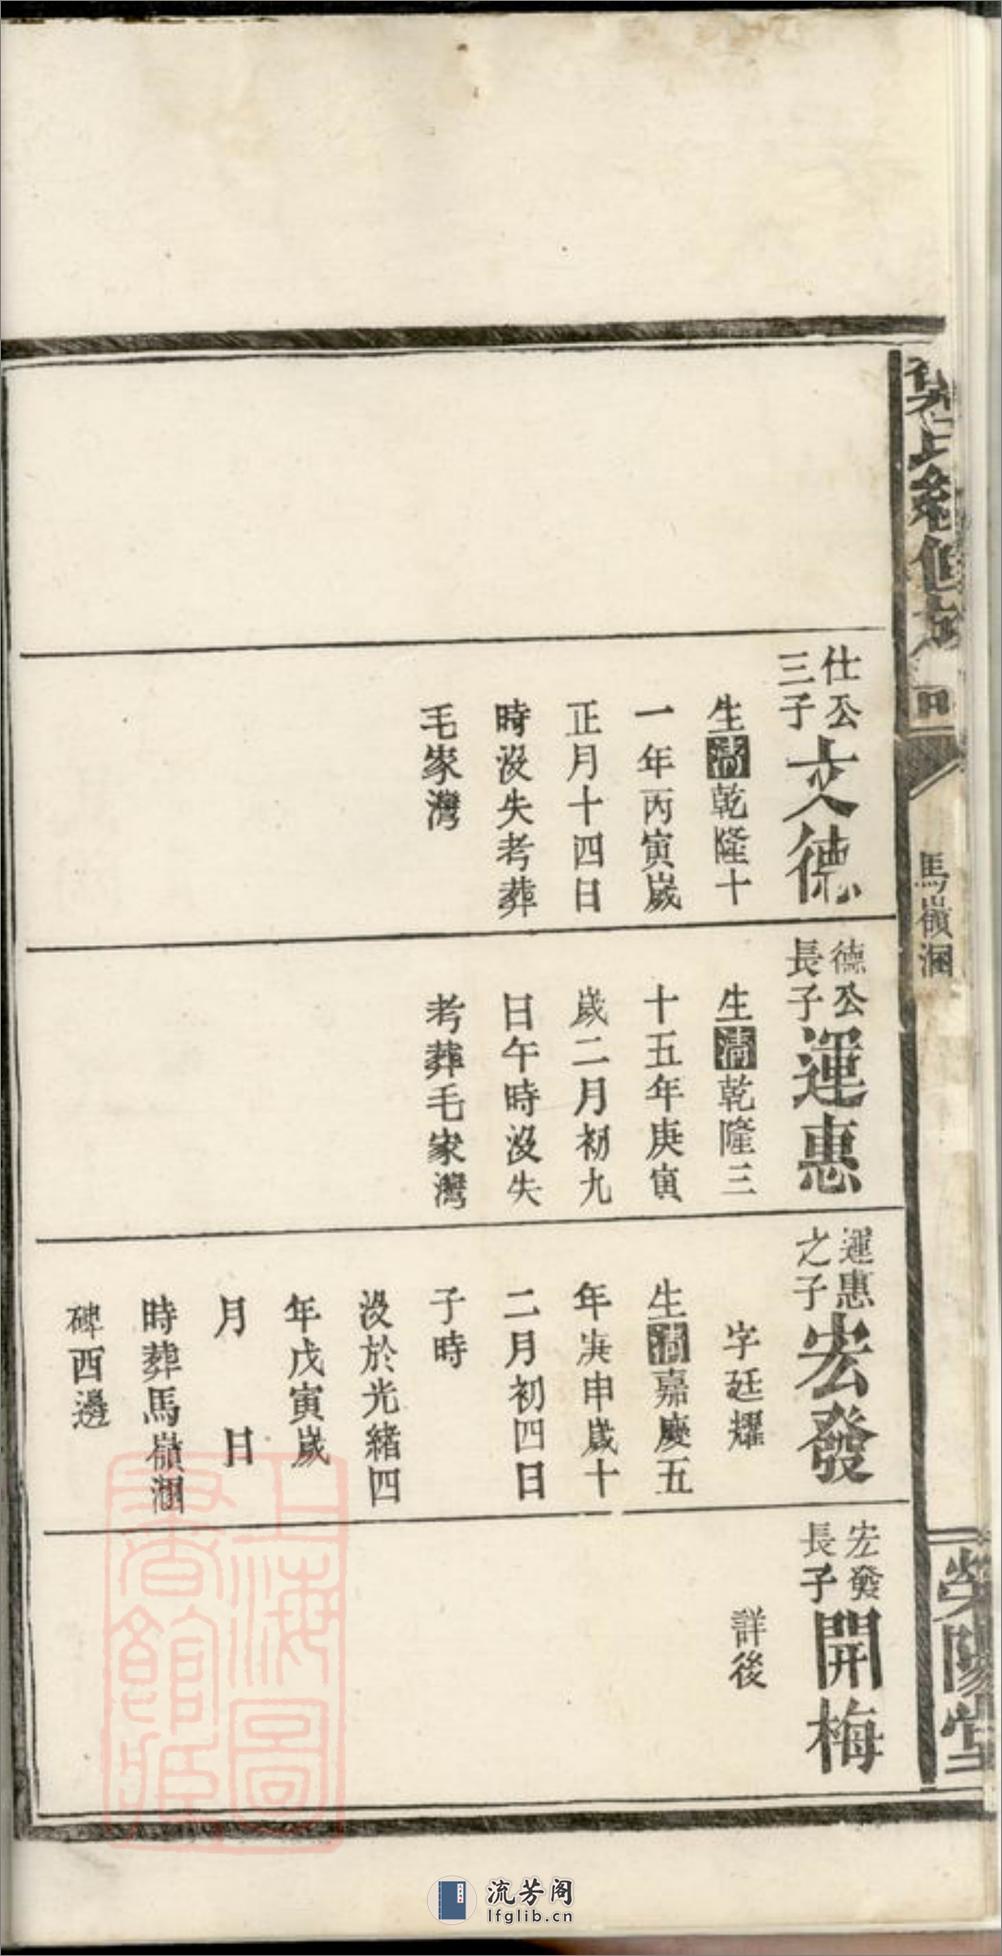 氏續修
馬嶺涸
滎陽堂
仕公
三子
文德
生清乾隆十
一年丙寅歲
正月十四日
時沒失考葬
毛家灣
德公
長子
運惠
生清乾隆三
十五年庚寅
歲二月初九
日午時沒失
考葬毛家灣
運惠
之子
宏發
字廷耀
生清嘉慶五
年庚申歲十
二月初四日
子時
沒於光緒四
年戊寅歲
月 日
時葬馬嶺涸
碑西邊
宏發
長子
開梅
詳後
上海圖
書館藏
流芳阁
lfglib.cn